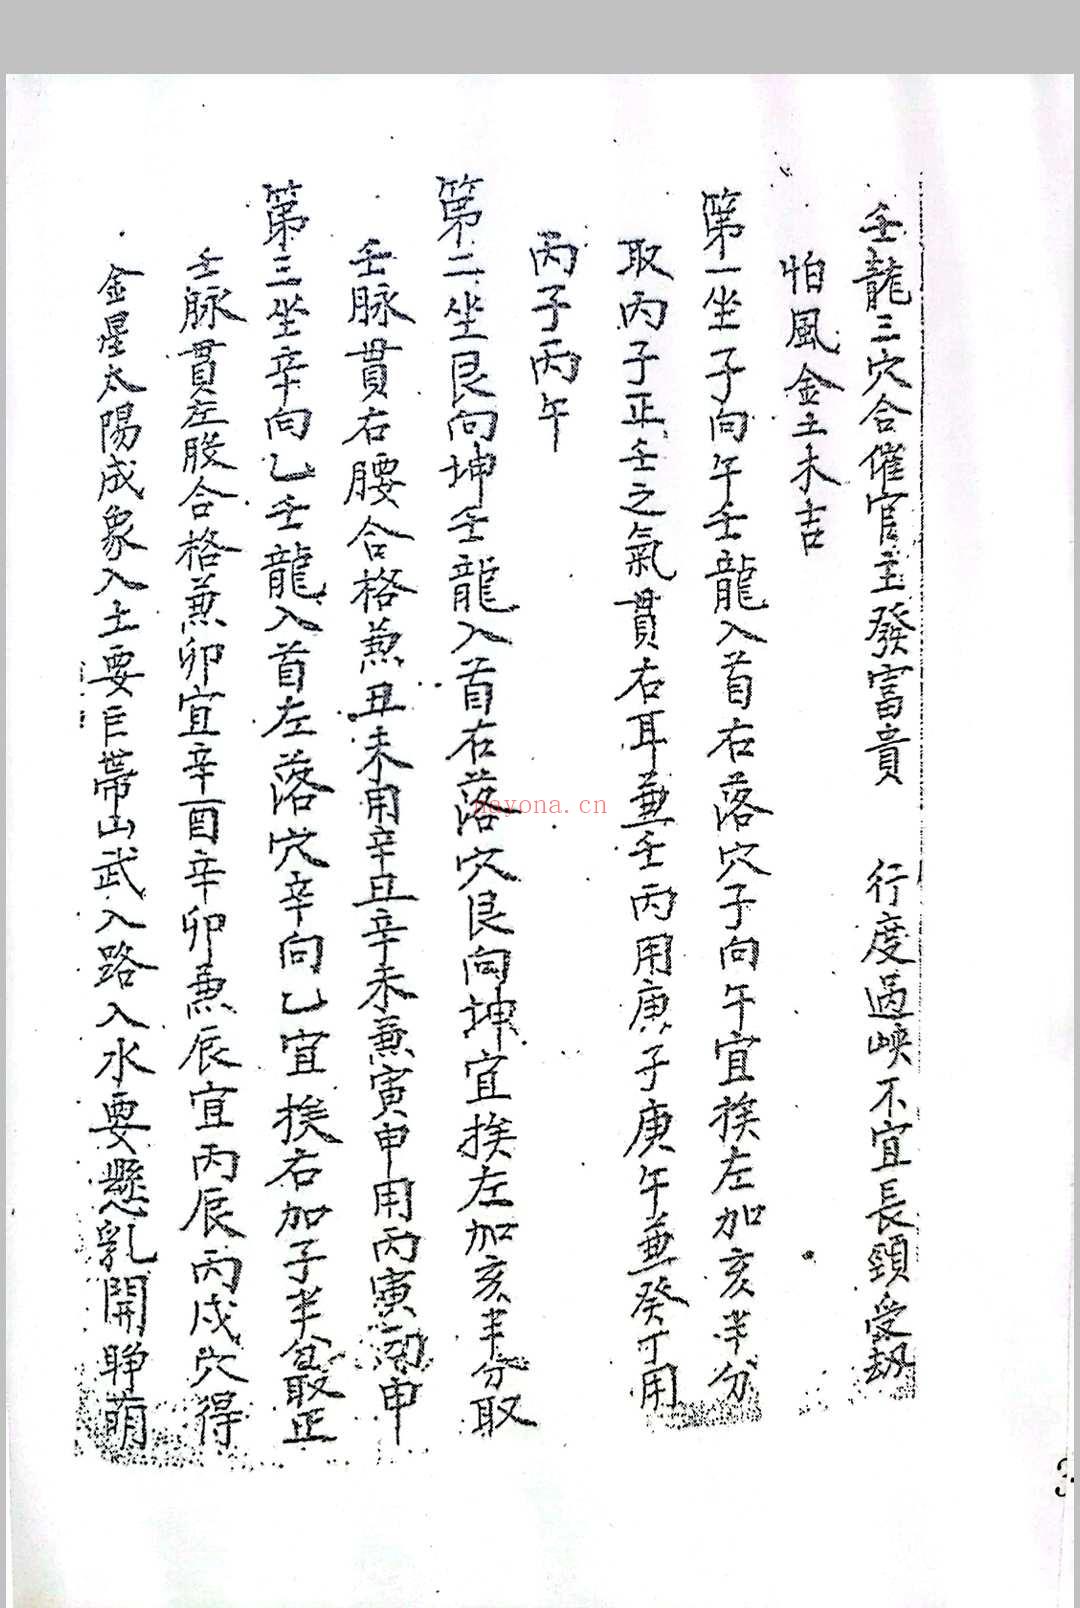 壬龍三穴合催官主發富貴　行度過峽不宜長頸受劫
怕風金土木吉
第一坐子向午壬龍入首右落穴子向午宜挨左加亥半分
取丙子正壬之氣貫右耳兼壬丙用庚子庚午兼癸丁用
丙子丙午
第二坐艮向坤壬龍入首右落穴艮向坤宜挨左加亥半分取
壬脉貫右腰合格兼丑未用辛丑辛未兼寅申用丙寅丙申
第三坐辛向乙壬龍入首左落穴辛向乙宜挨右加子半分取正
壬脉貫左股合格兼卯宜辛酉辛卯兼辰宜丙辰丙戌穴得
金星太陽成象入土要巨帶山武入路入水要懸乳開睜萌
nayona.cn
3